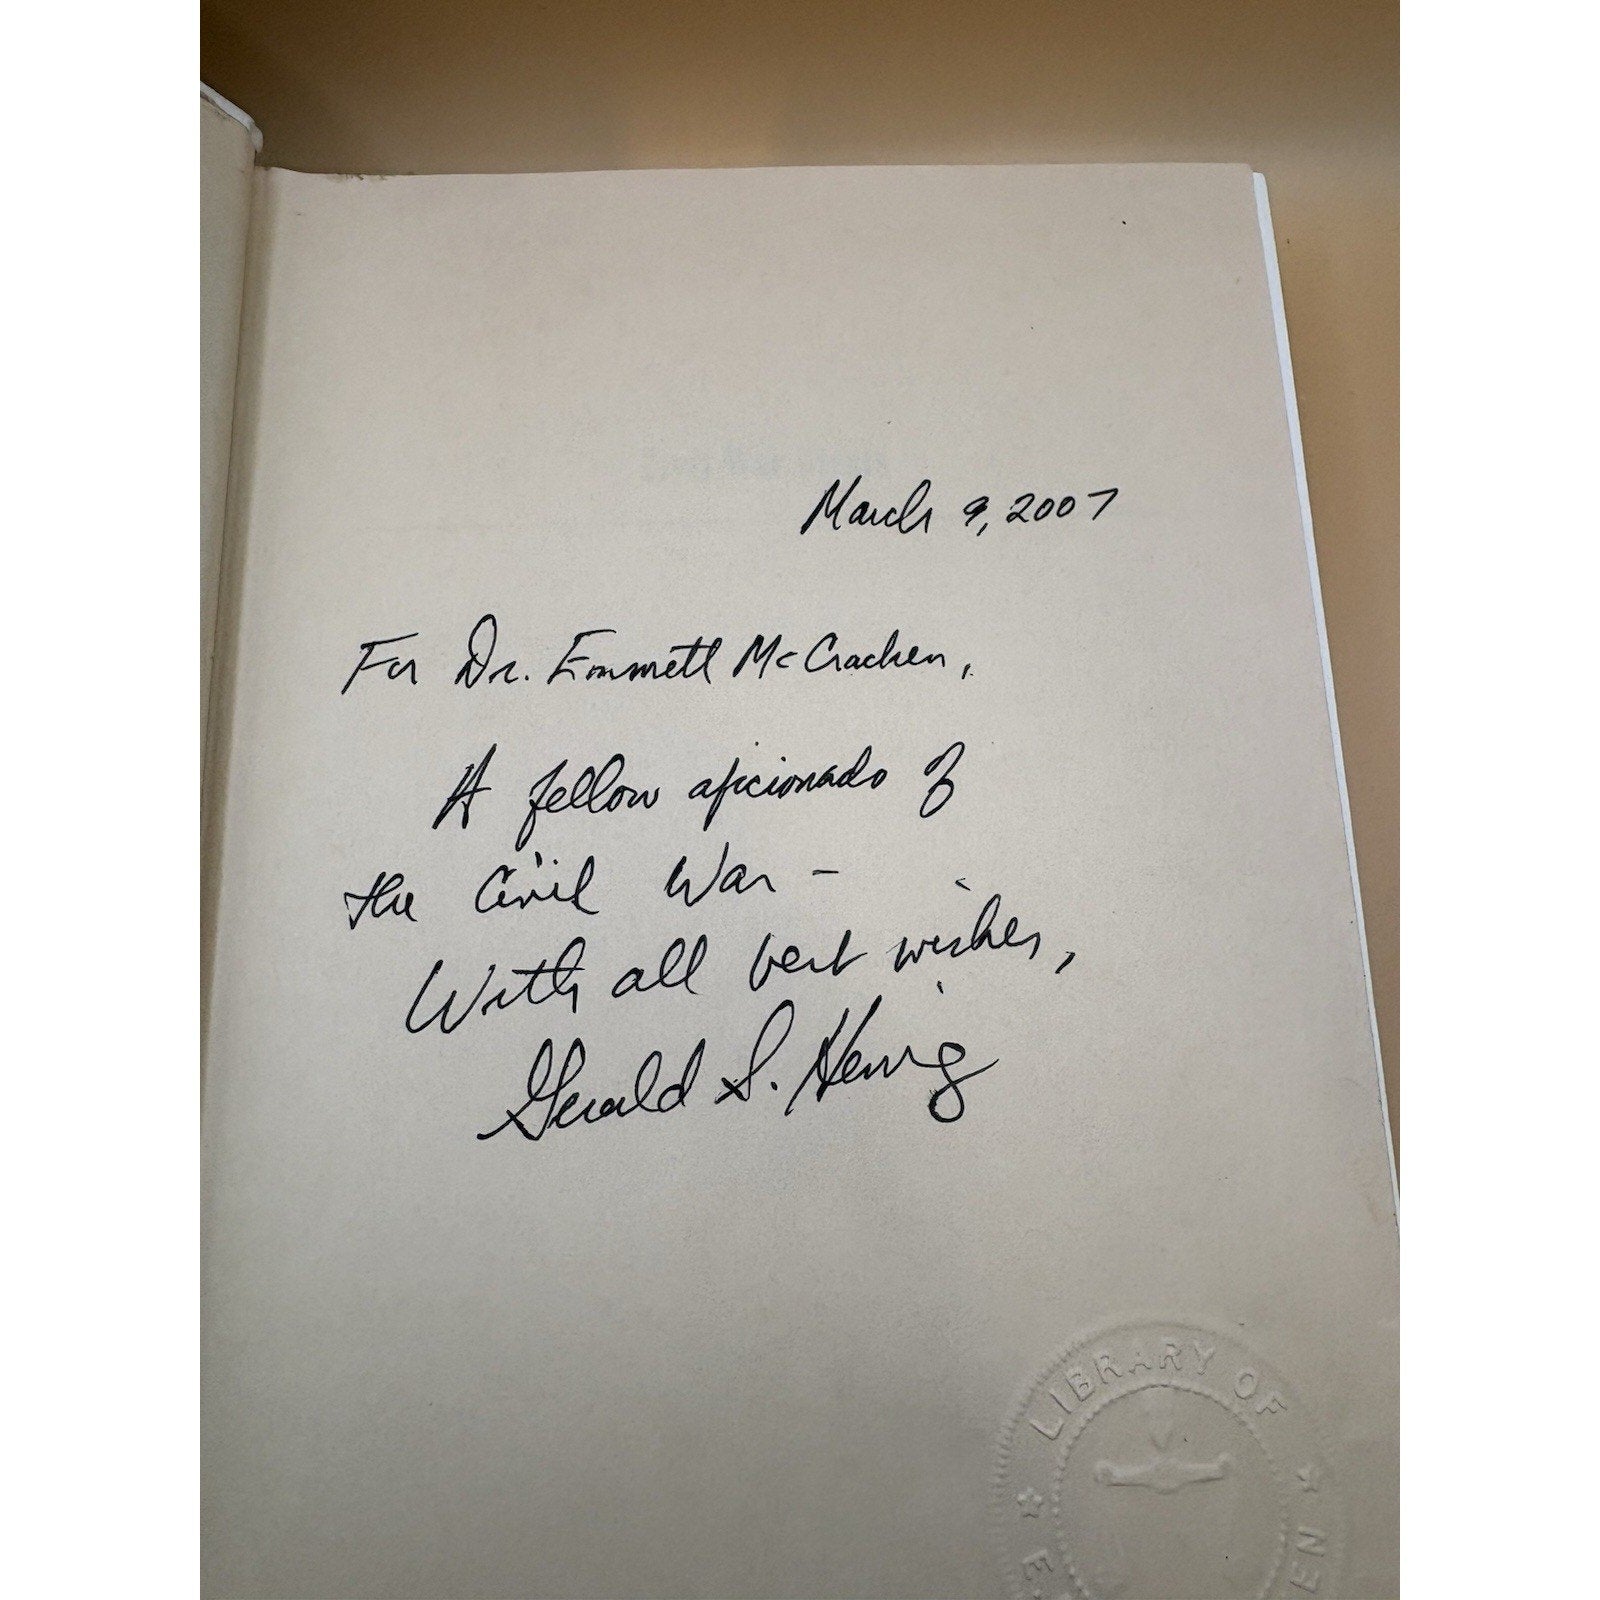 March 9, 2007
For Dr. Emmett McCracken,
A fellow aficionado of
the Civil War -
With all best wishes,
Gerald S. Henig
LIBRARY OF